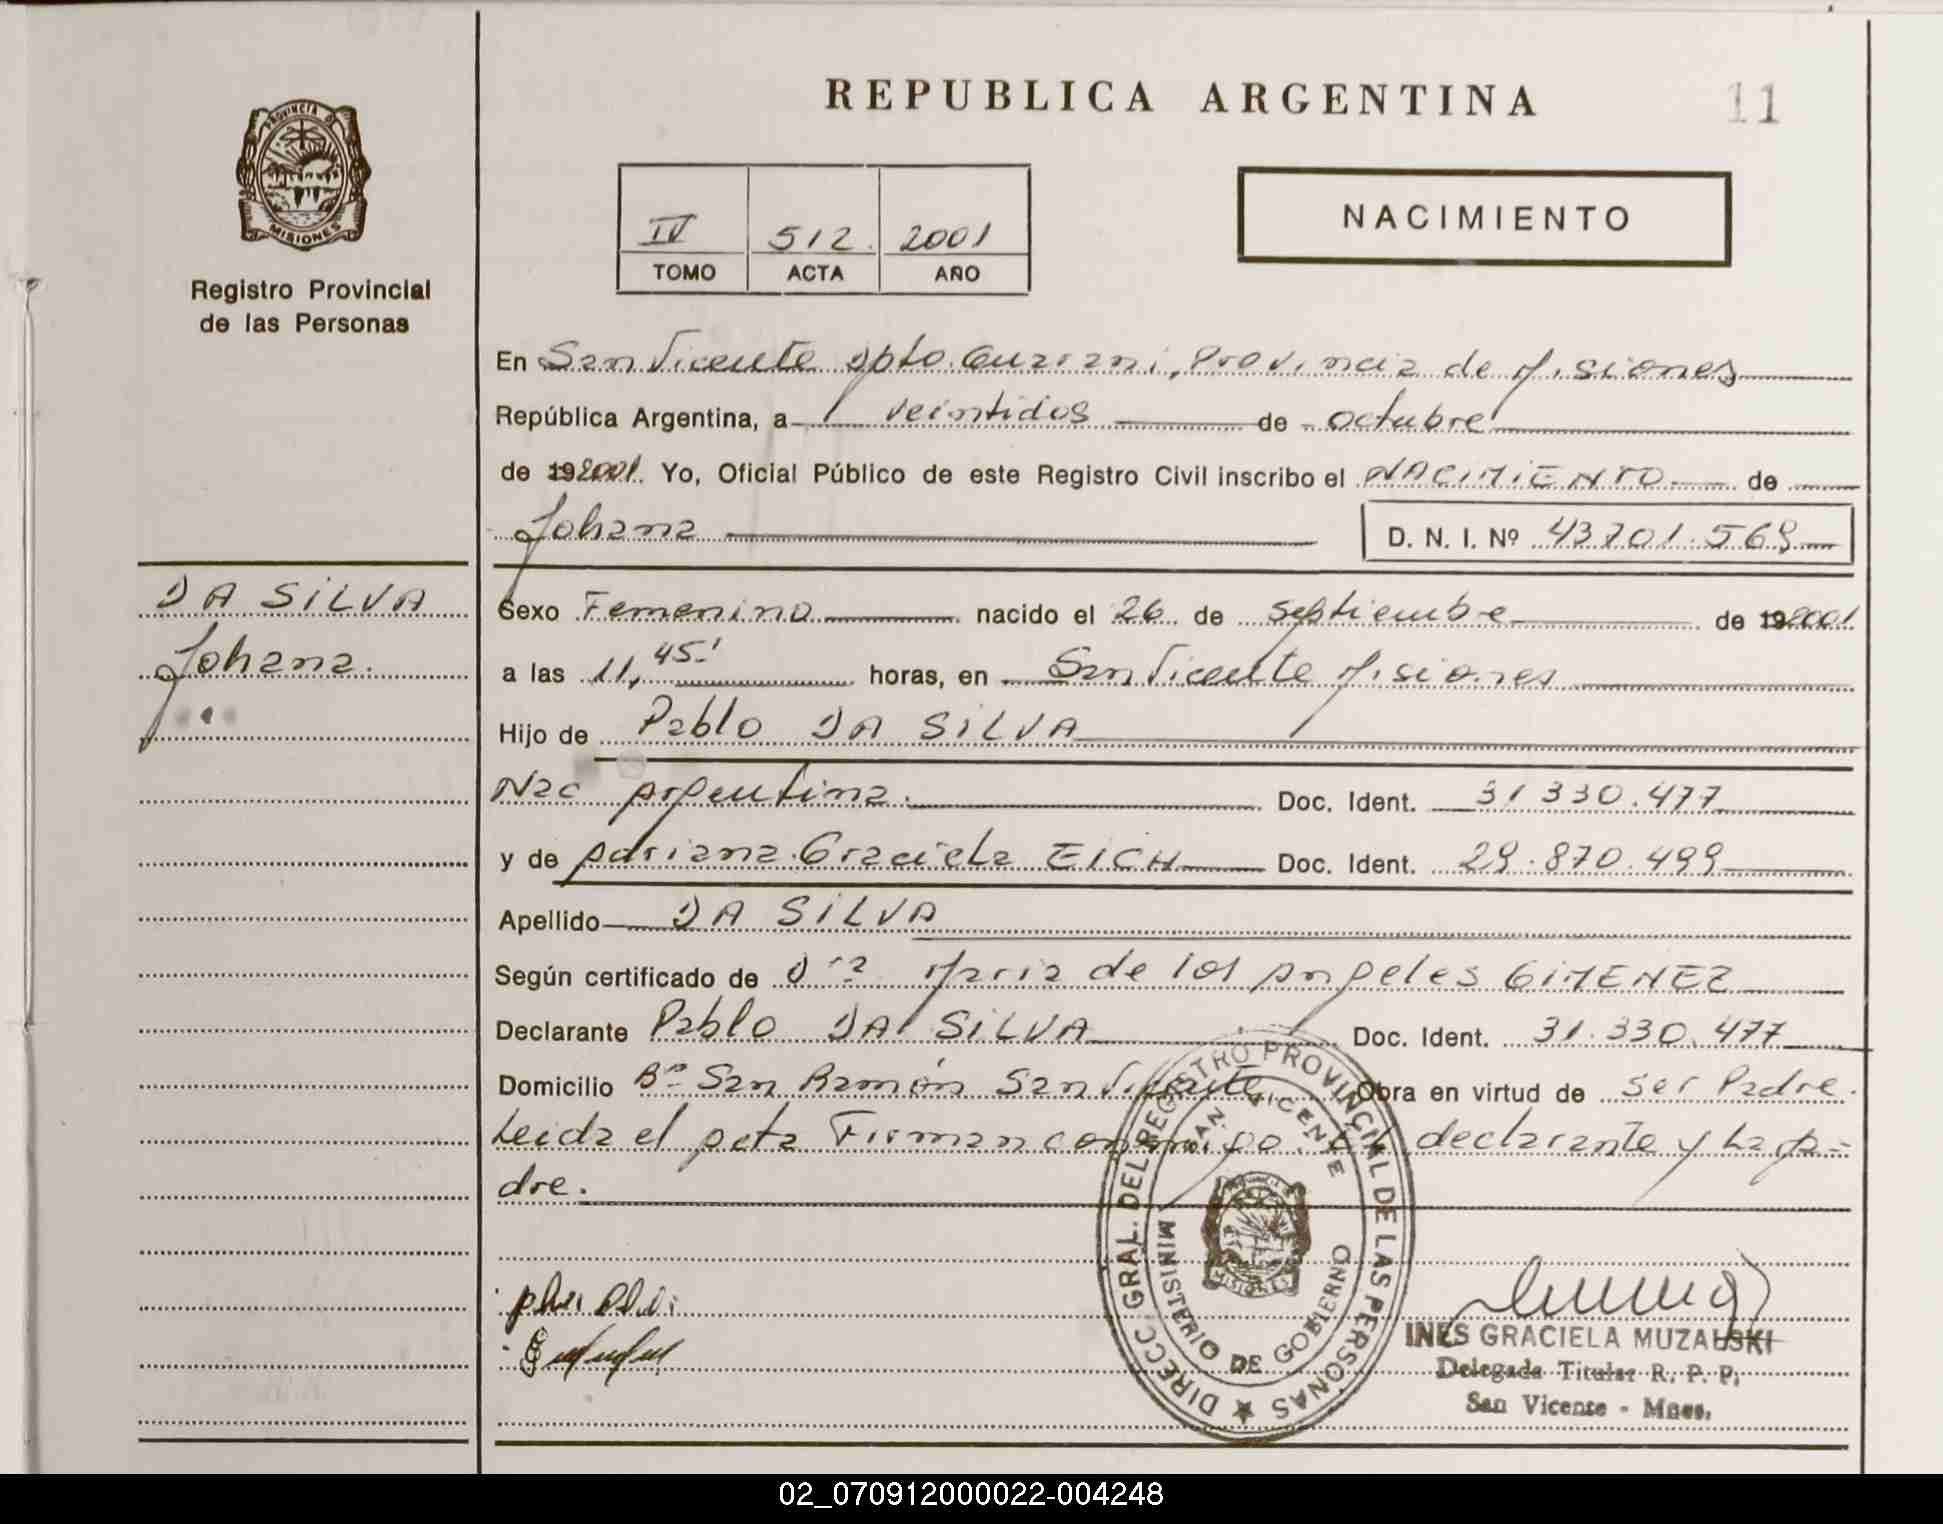 REPUBLICA ARGENTINA
11
PROVINCIA D
MISIONES
Registro Provincial
de las Personas
IV 512. 2001
TOMO ACTA AÑO
NACIMIENTO
En San Vicente Dpto. Guarani, Provincia de Misiones
República Argentina, a veintidos de octubre
de 192001. Yo, Oficial Público de este Registro Civil inscribo el NACIMIENTO de
Johana
D. N. I. Nº 43.701.569
DA SILVA
Johana.
Sexo Femenino nacido el 26 de septiembre de 192001
a las 11,45' horas, en San Vicente Misiones
Hijo de Pablo DA SILVA
Nac Argentina. Doc. Ident. 31.330.477
y de Adriana Graciela EICH Doc. Ident. 29.870.499
Apellido DA SILVA
Según certificado de Dra Maria de los Angeles GIMENEZ
Declarante Pablo DA SILVA Doc. Ident. 31.330.477
Domicilio Bº San Ramón San Vicente Obra en virtud de ser Padre.
Leida el Acta Firman conmigo el declarante y La Ma=
dre.
DIRECC. GRAL. DEL REGISTRO PROVINCIAL DE LAS PERSONAS
SAN VICENTE
MISIONES
MINISTERIO DE GOBIERNO
INES GRACIELA MUZALSKI
Delegada Titular R. P. P.
San Vicente - Mnes.
02_070912000022-004248